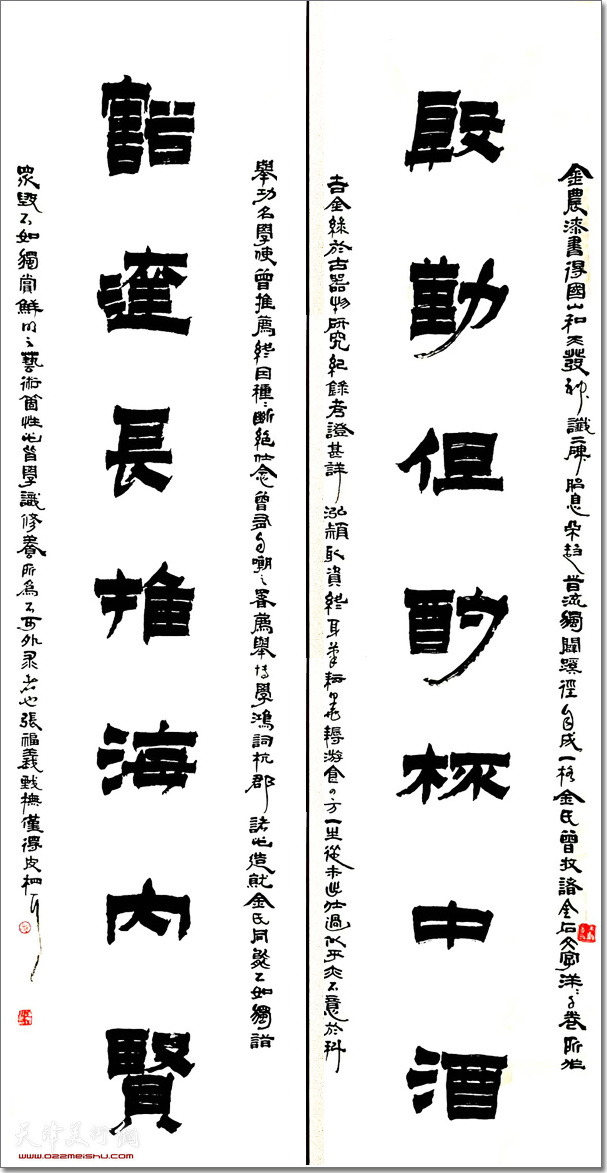 金農漆書得國山和天發神讖二碑息昔流獨闢蹊徑自成一格金氏曾收諸金石文字洋洋千卷所作
殷勤但酌杯中酒
吉金錄於古器物研究紀錄考證甚詳泓穎取資終身筆耕耨游食四方一生從未出仕過似乎亦不意於科
舉功名學使曾推薦終因種種斷絕仕念曾有自嘲之署薦舉博學鴻詞杭郡諸也造就金氏同能不如獨詣
豁達長推海内賢
眾毀不如獨賞鮮明之藝術個性也皆學識修養所為不可外求者也張福義戲撫僅得皮相耳
天津美術網
www.022meishu.com